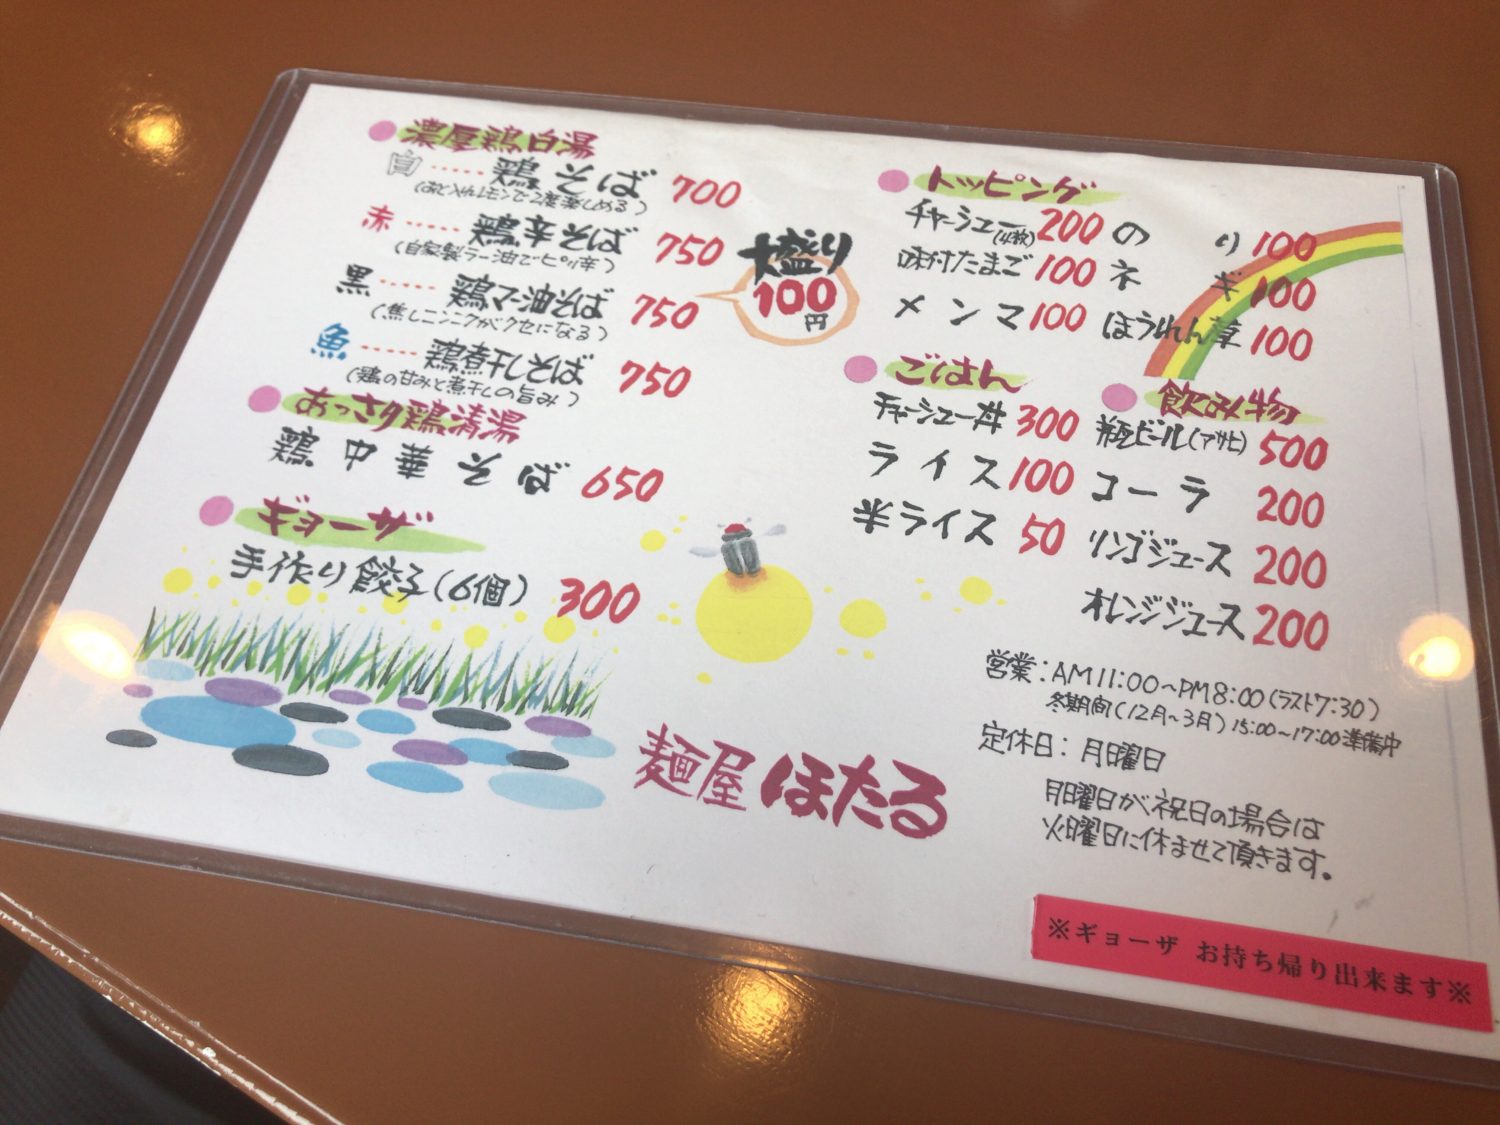 濃厚鶏白湯
白……鶏そば 700
(あと入れレモンで2度楽しめる)
赤……鶏辛そば 750
(自家製ラー油でピリ辛)
黒……鶏マー油そば 750
(焦しニンニクがクセになる)
魚……鶏煮干しそば 750
(鶏の甘みと煮干しの旨み)
大盛り
100
円
あっさり鶏清湯
鶏中華そば 650
ギョーザ
手作り餃子(6個) 300
トッピング
チャーシュー(4枚) 200 のり 100
味付たまご 100 ネギ 100
メンマ 100 ほうれん草 100
ごはん
チャーシュー丼 300
ライス 100
半ライス 50
飲み物
瓶ビール(アサヒ) 500
コーラ 200
リンゴジュース 200
オレンジジュース 200
営業:AM11:00~PM8:00(ラスト7:30)
冬期間(12月~3月)15:00~17:00準備中
定休日:月曜日
月曜日が祝日の場合は
火曜日に休ませて頂きます。
麺屋ほたる
※ギョーザ お持ち帰り出来ます※